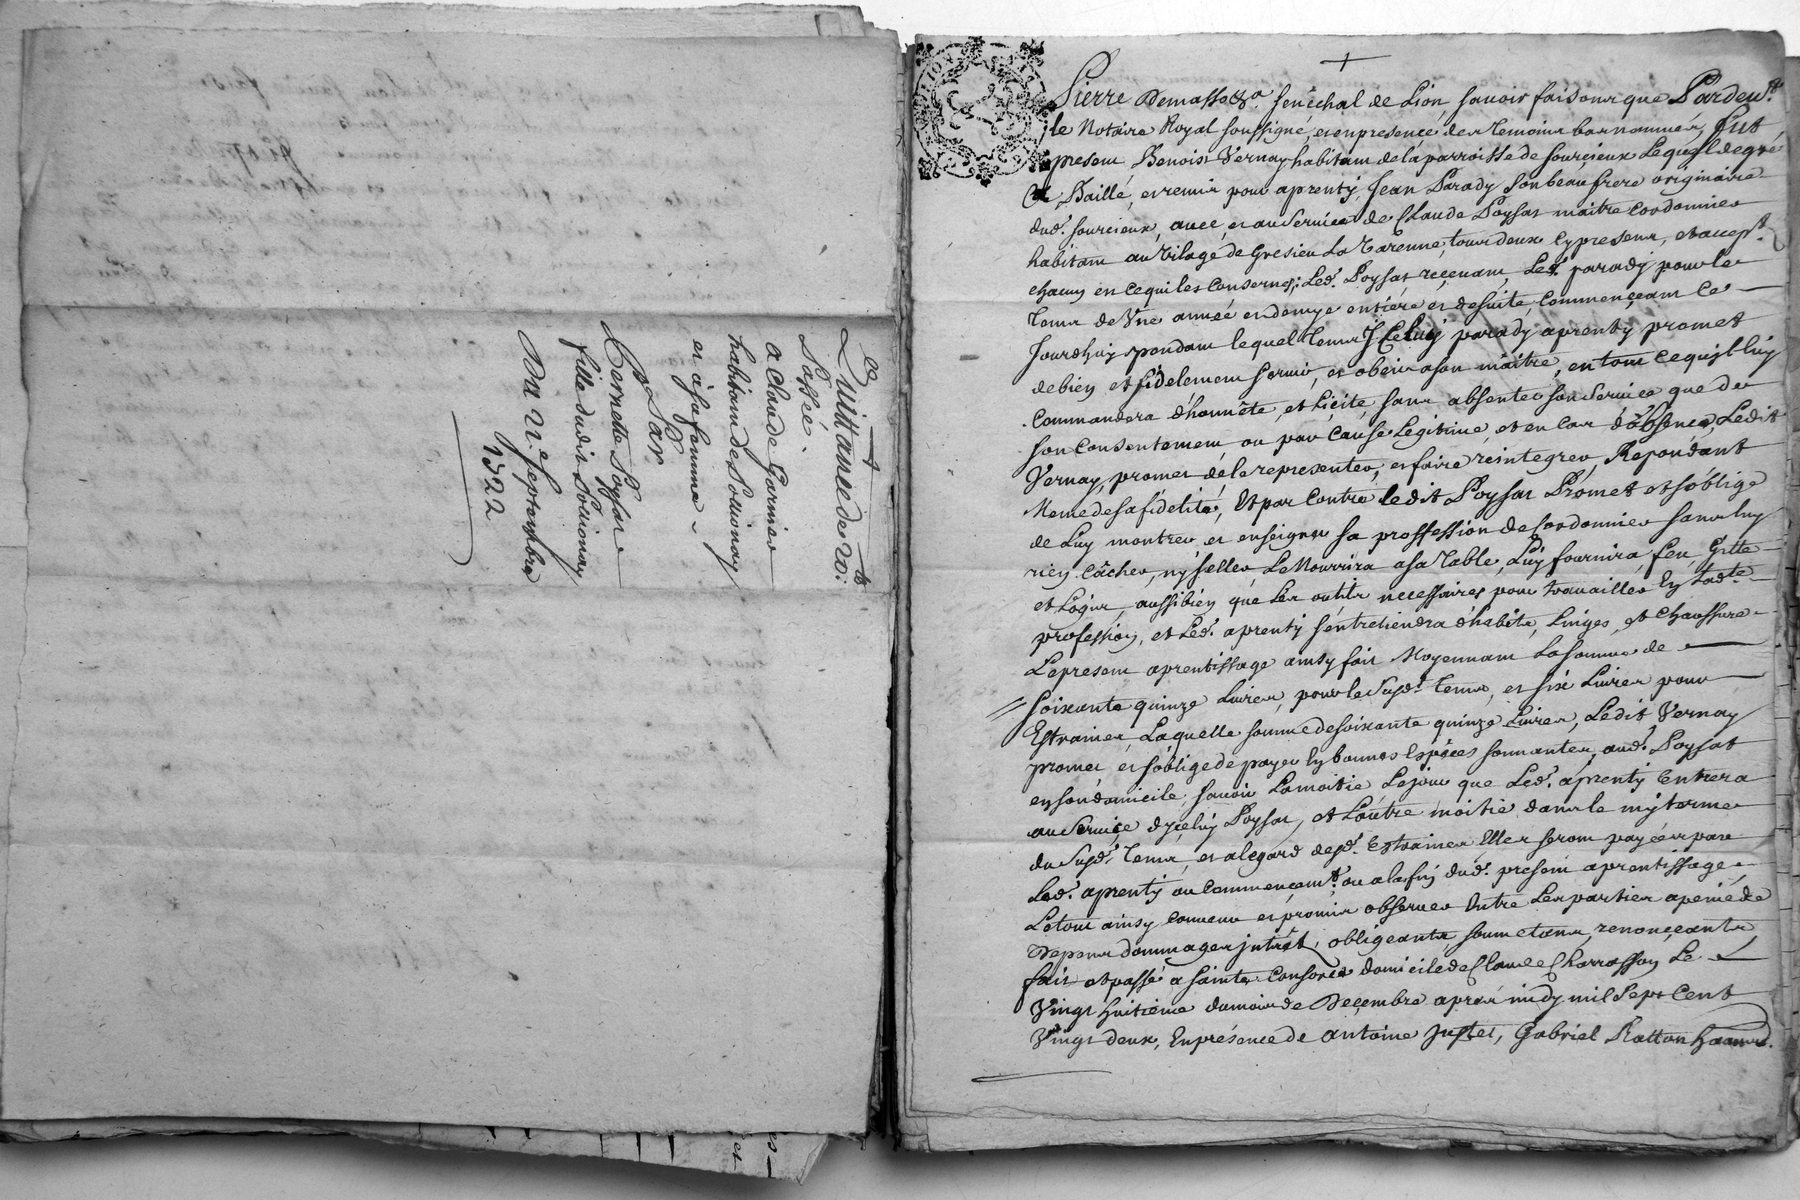 Quittance de 20:
Passée.
a Claude Garnier
habitant de Sourionay
et à sa femme
Par
Bernette Poyson
fille dudit Sourionay
Du 21e Septembre
1722
+
Pierre Demassozo. senéchal de Lion, sçavoir faisons que Pardevt.
le Notaire Royal soussigné, et en presence des temoins bas nommés, fut
present Benoist Vernay habitant de la parroisse de sourcieux Lequel de gré
a Baillé, et remis pour aprentÿ, Jean Parady son beau frere originaire
dud. sourcieux, avec, et au service de Claude Poysat maitre cordonnier
habitant au vilage de Gresieu La Varenne, tous deux cy presens, et accept.
chacun en ce qui les conserne; Led. Poysat recevant, Led. paradÿ pour le
tems de Une année et demye entière et de suite, commençeant Ce
Jourdhuy pendant lequel tems JCeluÿ paradÿ aprentÿ promet
de bien et fidelement servir, et obeir a son maître, en tout ce qu'jl luy
commandera d'honnête, et liçite, sans absenter son service que de
son consentement ou pour cause Legitime, et en cas d'absence, Ledit
Vernay, promet de le representer, et faire reintegrer, Repondant
Meme de sa fidelité, Et par contre ledit Poysat Promet et s'oblige
de Luy montrer et enseigner sa proffession de Cordonnier sans luy
rien câcher, nÿ seller, Le Nourrira a sa table, Luÿ fournira, feu, Gitte
et Logis, aussi bien que les outils necessaires pour travailler En lad.te
profession, et Led. aprentÿ s'entretiendra d'habits, Linges, et chaussure
Le present aprentissage ainsy fait Moyennant La somme de
soixante quinze Livres, pour le susd. tems, et six Livres pour
Estraines, Laquelle somme de soixante quinze Livres, Ledit Vernay
promet et s'oblige de payer En bonnes Espèces sonnantes, aud. Poysat
en son domicile, sçavoir La moitie, Le jour que Led. aprentÿ Entrera
au Service d'jceluÿ Poysat, et L'autre moitié dans le mÿ terme
du susd. tems, et a l'egard desd. Estraines Elles seront payées par
Led. aprentÿ au commençemt. ou a la fin dud. present aprentissage
Le tout ainsy convenu et promis observer Entre Les parties a peine de
depens dommages jnterêt, obligeants, soumetans, renonçeants,
fait et passé a sainte Consorce domicile de Claude Charrasson Le
Vingt huitieme du mois de Decembre après midy mil Sept Cent
Vingt deux, En présence de antoine justet, Gabriel Ratton